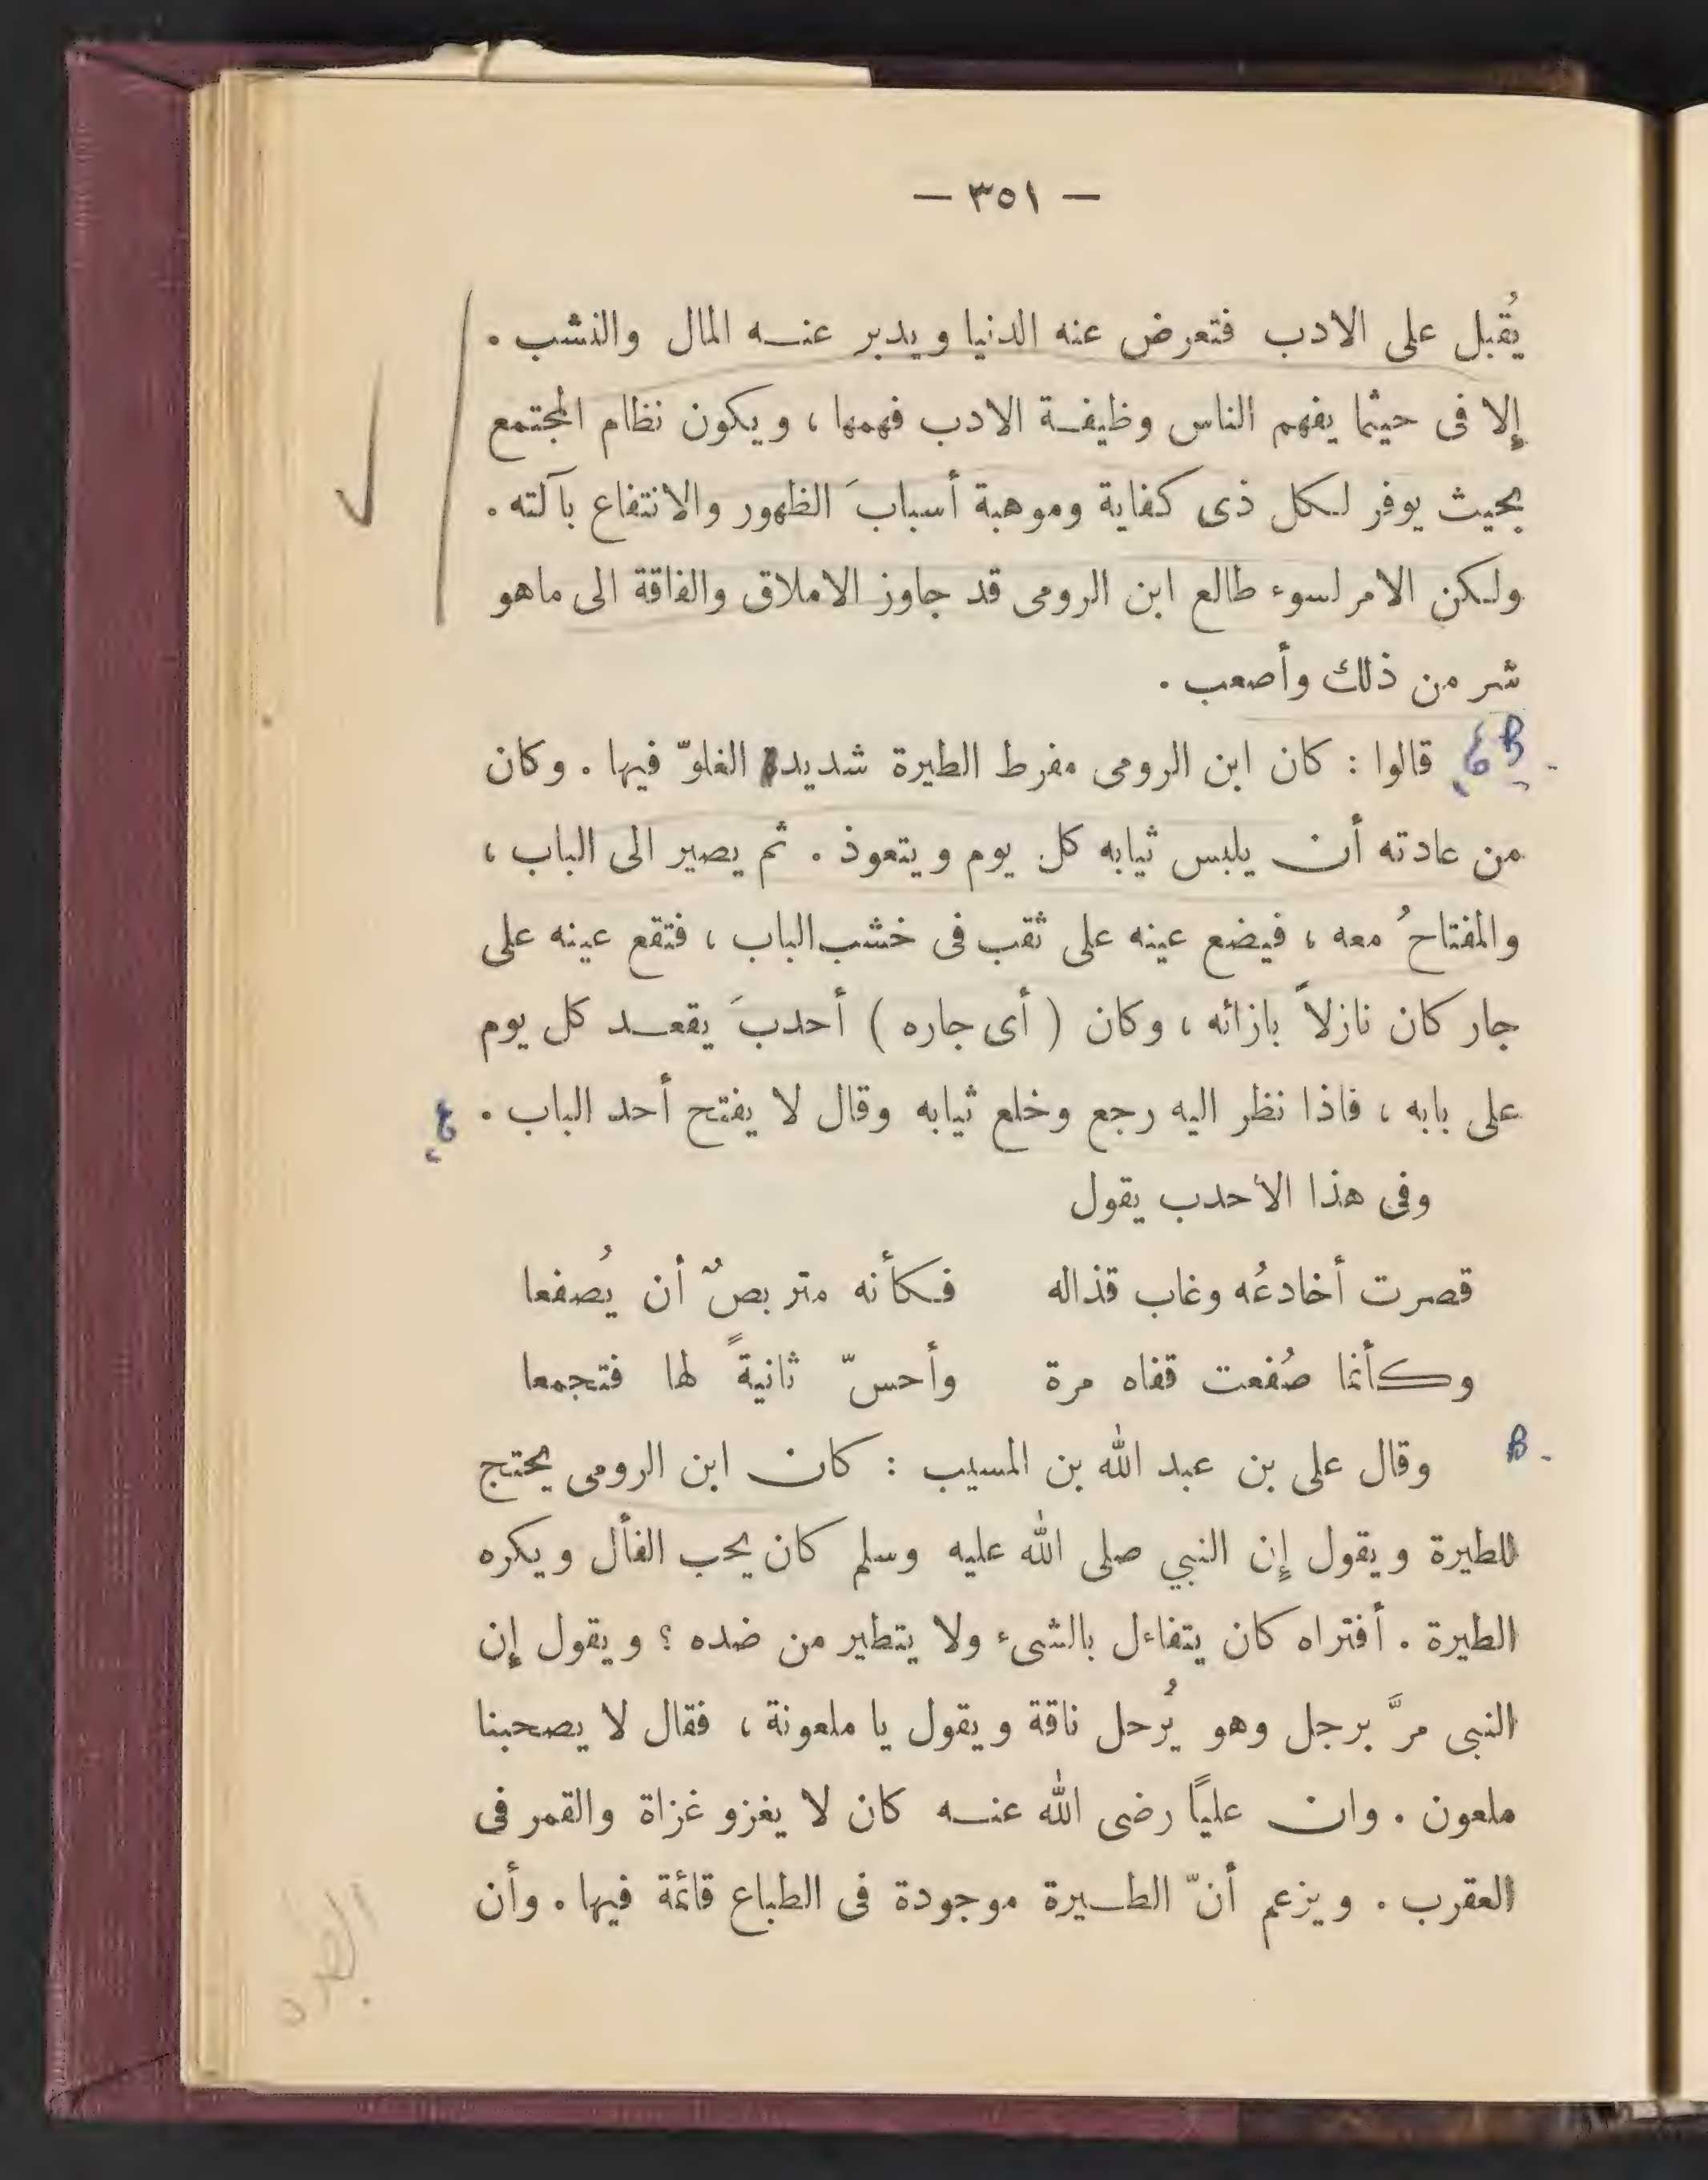 — ٣٥١ —
يُقبل على الادب فتعرض عنه الدنيا ويدبر عنه المال والنشب .
إلا فى حيثما يفهم الناس وظيفة الادب فهمها ، ويكون نظام المجتمع
بحيث يوفر لكل ذى كفاية وموهبة أسبابَ الظهور والانتفاع بآلته .
ولكن الامر لسوء طالع ابن الرومى قد جاوز الاملاق والفاقة الى ماهو
شر من ذلك وأصعب .
قالوا : كان ابن الرومى مفرط الطيرة شديد الغلوّ فيها . وكان
من عادته أن يلبس ثيابه كل يوم ويتعوذ . ثم يصير الى الباب ،
والمفتاحُ معه ، فيضع عينه على ثقب فى خشب الباب ، فتقع عينه على
جار كان نازلاً بازائه ، وكان ( أى جاره ) أحدبَ يقعد كل يوم
على بابه ، فاذا نظر اليه رجع وخلع ثيابه وقال لا يفتح أحد الباب .
وفى هذا الأحدب يقول
قصرت أخادعُه وغاب قذاله فكأنه متربصٌ أن يُصفعا
وكأنما صُفعت قفاه مرة وأحسّ ثانيةً لها فتجمعا
B
وقال على بن عبد الله بن المسيب : كان ابن الرومى يحتج
للطيرة ويقول إن النبي صلى الله عليه وسلم كان يحب الفأل ويكره
الطيرة . أفتراه كان يتفاءل بالشىء ولا يتطير من ضده ؟ ويقول إن
النبى مرَّ برجل وهو يُرحل ناقة ويقول يا ملعونة ، فقال لا يصحبنا
ملعون . وان عليًا رضى الله عنه كان لا يغزو غزاة والقمر فى
العقرب . ويزعم أنّ الطيرة موجودة فى الطباع قائمة فيها . وأن